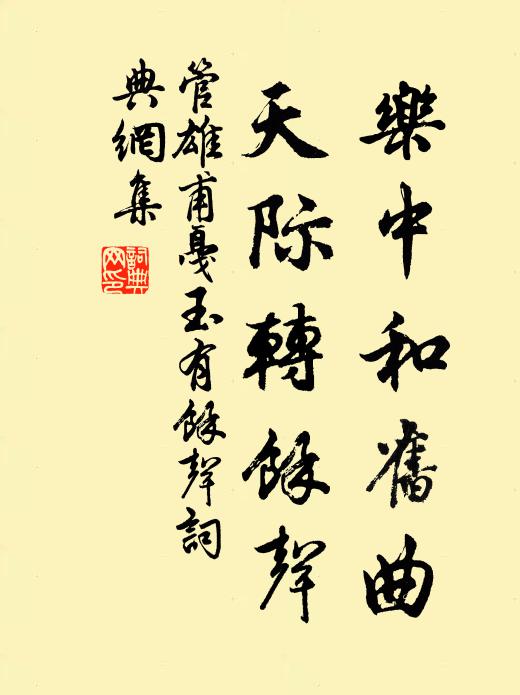 樂中和舊曲
天际轉餘聲
管雄甫戛玉有餘聲詞
典網集
詞典網印